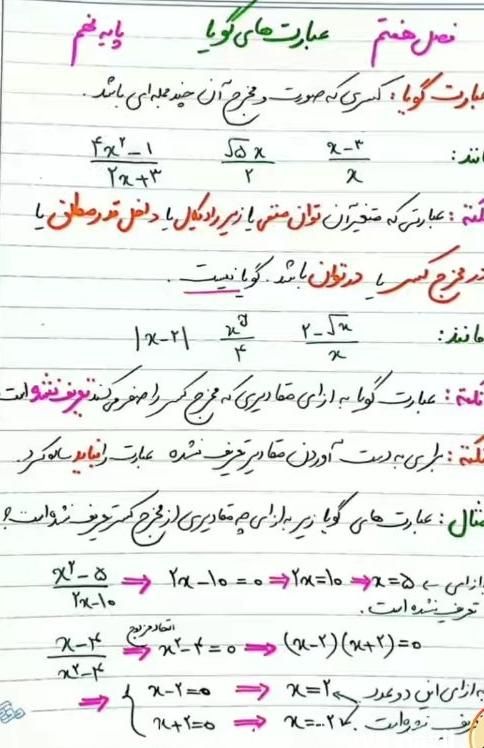 فصل هفتم عبارت‌های گویا پایه نهم
عبارت گویا: کسری که صورت و مخرج آن چندجمله‌ای باشد.
مانند: (x-۳)/x (√۵ x)/۲ (۴x²-۱)/(۲x+۳)
نکته: عبارتی که متغیر آن توان منفی یا زیر رادیکال یا داخل قدر مطلق یا
در مخرج کسر یا در توان باشد. گویا نیست.
مانند: (۲-√x)/x /۴ |x-۲|
نکته: عبارت گویا به ازای مقادیری که مخرج کسر را صفر می‌کند تعریف نشده است
نکته: برای به دست آوردن مقادیر تعریف نشده عبارت را نباید ساده کرد
مثال: عبارت های گویا زیر به ازای چه مقادیری از مخرج کسر تعریف نشده است؟
(x²-۵)/(۲x-۱۰) ⇒ ۲x-۱۰=۰ ⇒ ۲x=۱۰ ⇒ x=۵ ← به ازای
تعریف نشده است.
(x-۴)/(x²-۴) ⇒ اتحاد مزدوج x²-۴=۰ ⇒ (x-۲)(x+۲)=۰
⇒ { x-۲=۰ ⇒ x=۲ به ازای این دو عدد
x+۲=۰ ⇒ x=-۲ تعریف نشده است